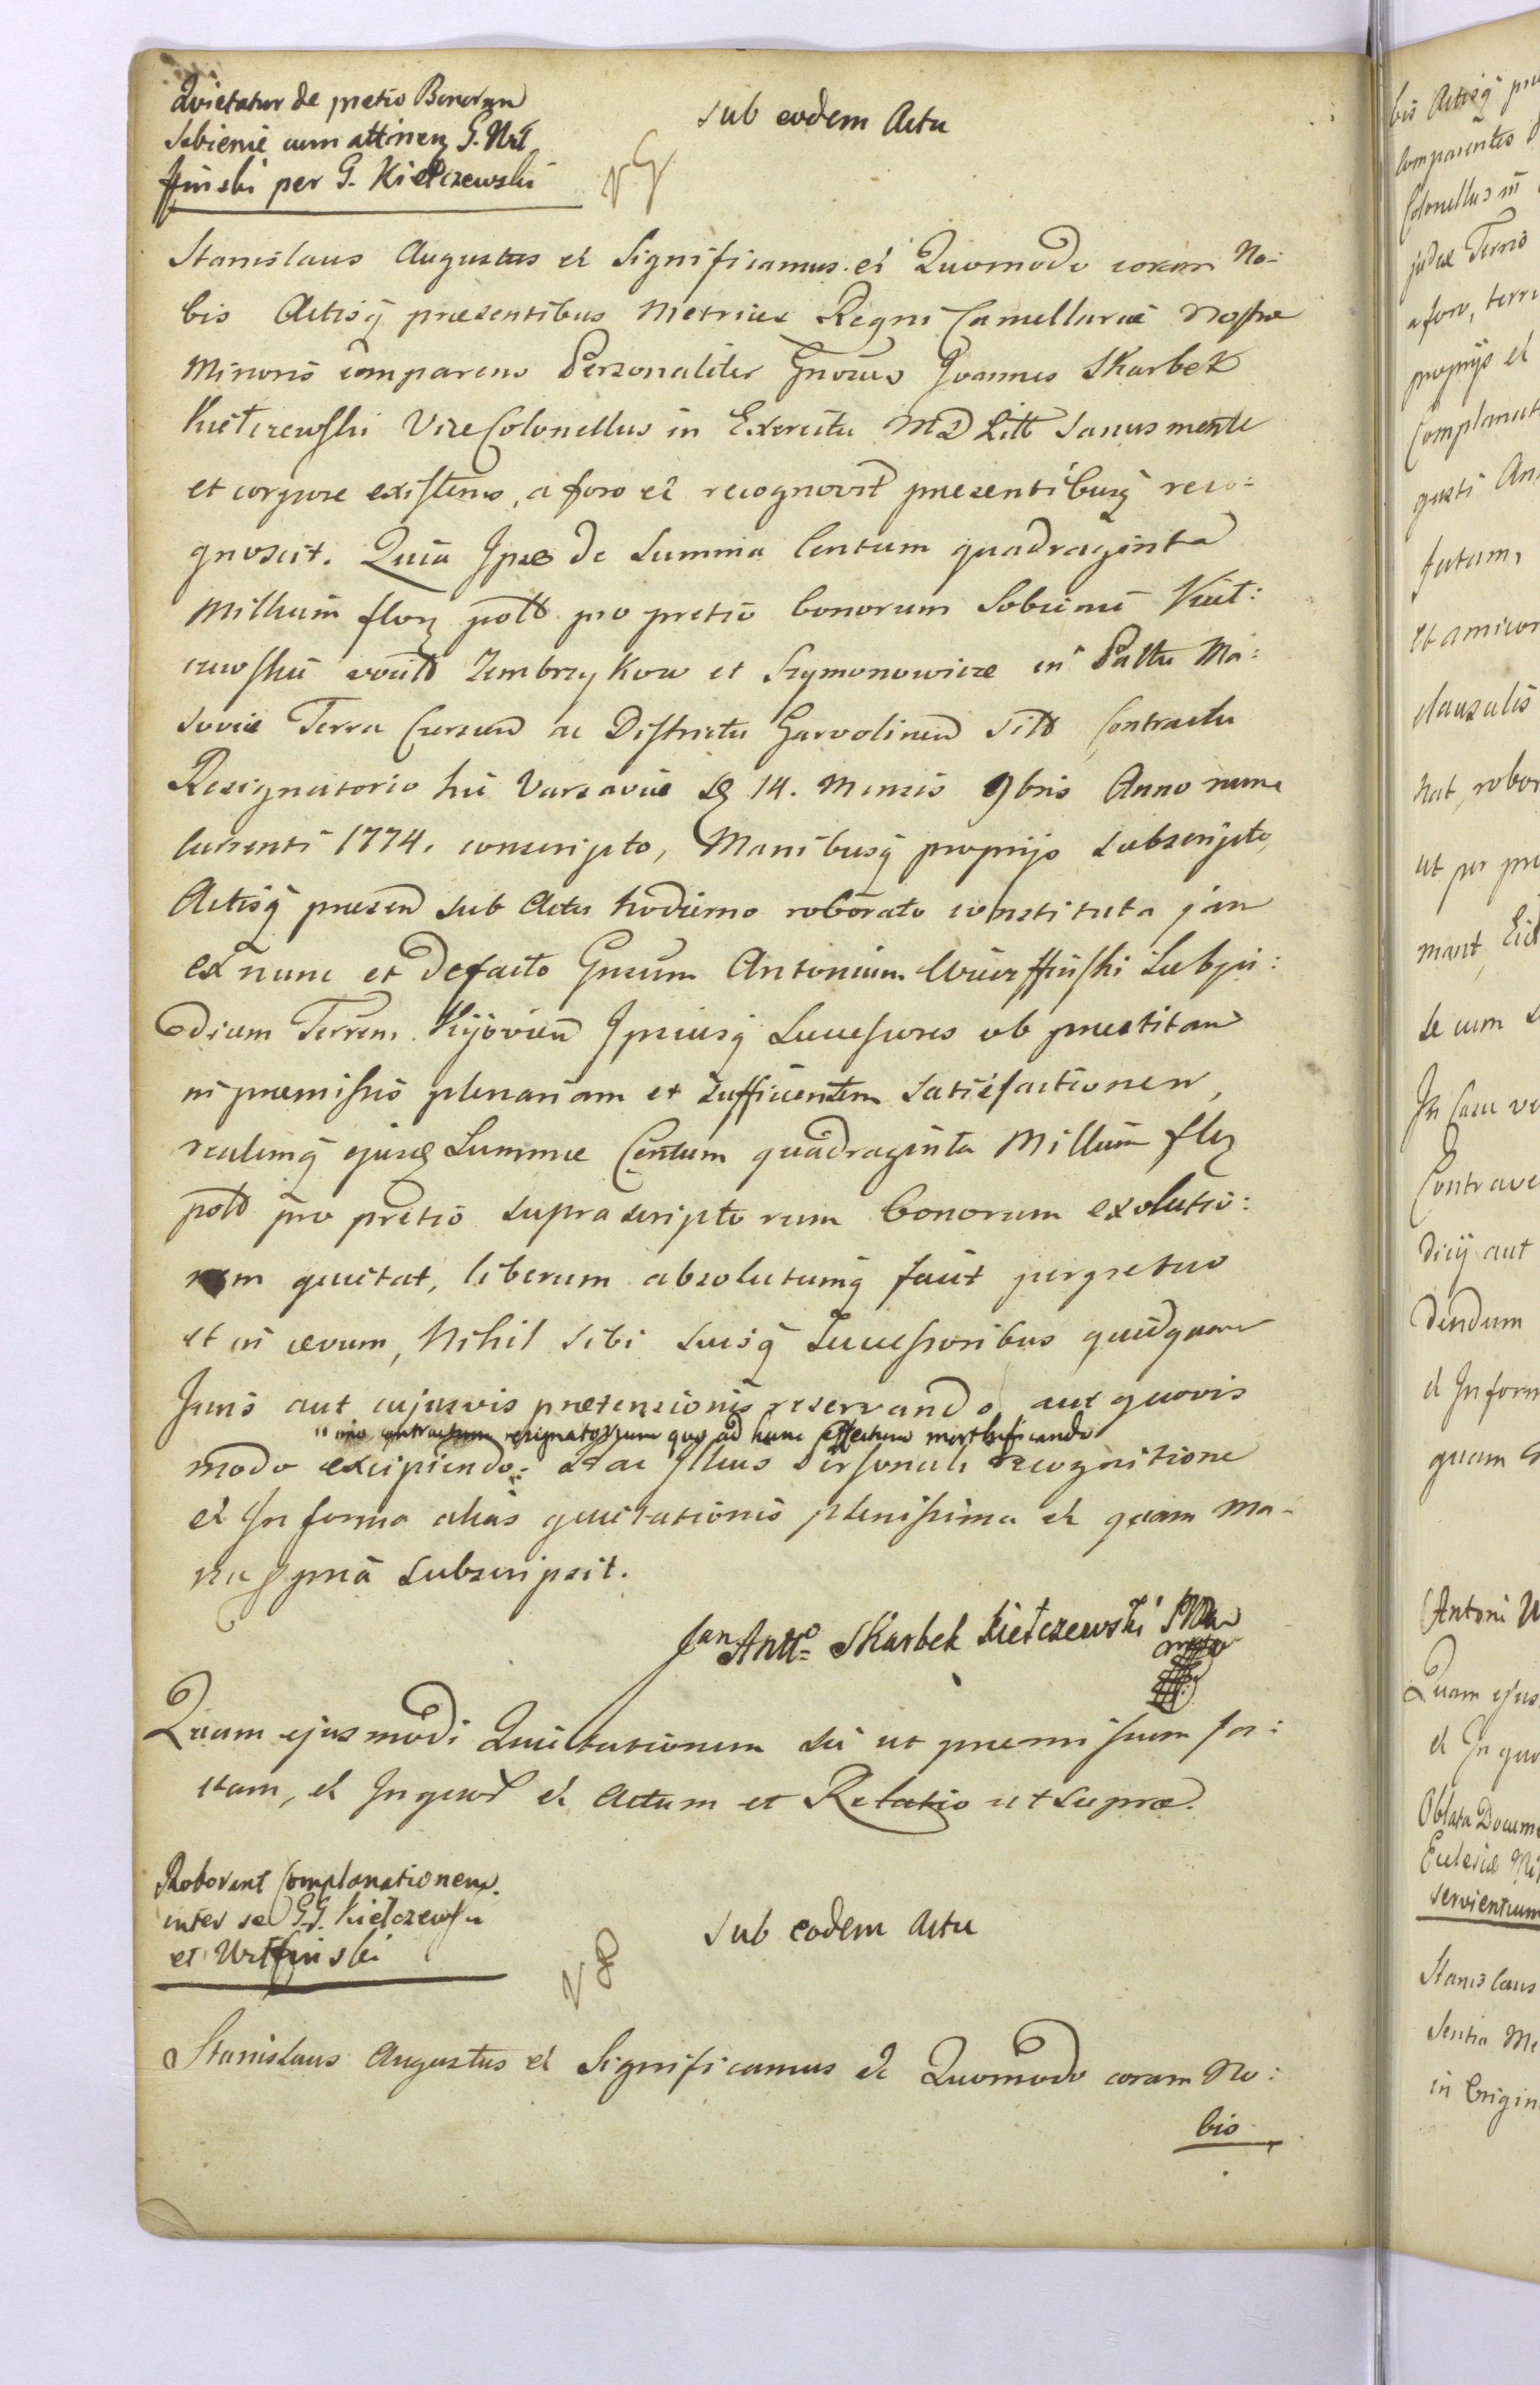 Quietatur de pretio Bonorum
Sobienie cum attinen G. Url
ffinski per G. Kiełczewski
sub eodem Actu
Stanislaus Augustus et Significamus. et Quomodo coram No:
bis Actisq presentibus Metrices Regni Cancellariæ Nostræ
Minoris comparens Personaliter Gnosus Joannes Skarbek
Kiełczewski Vice Colonellus in Exercitu MD Litt Sanus mente
et corpore existens, a foro et recognovit presentibusq reco:
gnoscit. Quia Ipse de Summa Centum quadraginta
Millium flor poll pro pretio bonorum Sobienie Kieł:
czewskie Zembrzykow et Szymonowice in Pallu Ma:
soviæ Terra Cersen ac Districtu Garvolinen sitt Contractu
Resignatorio hic Varsaviæ D 14. Mensis 9bris Anno nunc
Currenti 1774. conscripto, Manibusq proprijs subscripto,
Actisq presen sub Actu hodierno roborato constituta jam
ex nunc et defacto Gnsum Antonium subju:
dicem Terren. Kijovien Ipsiusq Successores ob prestitam
in premissis plenariam et sufficientem satisfactionem,
realemq ejusd Summæ Centum quadraginta Millium flor
poll pro pretio suprascriptorum bonorum exolutio:
nem quietat, liberum absolutumq facit perpetuo
et in ævum, Nihil sibi suisq Successoribus quidquam
Juris aut cujusvis pretensionis reservando, aut quovis
imo contractum resignatorium quo ad hunc effectum mortificando
modo excipiendo: et ac Illius Personali recognitione
et In forma alias quietationis plenissima et quam Ma-
nu ppria subscripsit.
Jan Antto Skarbek Kiełczewski
Quam ejusmodi Quietationem sic ut premissum fa:
ctam, et Ingross et Actum et Relatio ut supra.
Roborant Complanationem
inter se GG. Kiełczewski
et Urlffinski
sub eodem Actu
Stanislaus Augustus et Significamus et Quomodo coram No:
bis
bis Actisq
Comparentes
Colonellus in
judex Terris
a foro, terri
proprijs et
Complanat
gusti An
factam,
et amicor
clausulis
hat, robor
ut per pre
mant, Eid
se cum
In Casu ve
Contrave
dicij aut
dendum
et Inform
quam
Antoni
Quam ejus
et In quo
Oblata Docume
Ecclesiæ
servientium
Stanislaus
sentia Me
in Origin